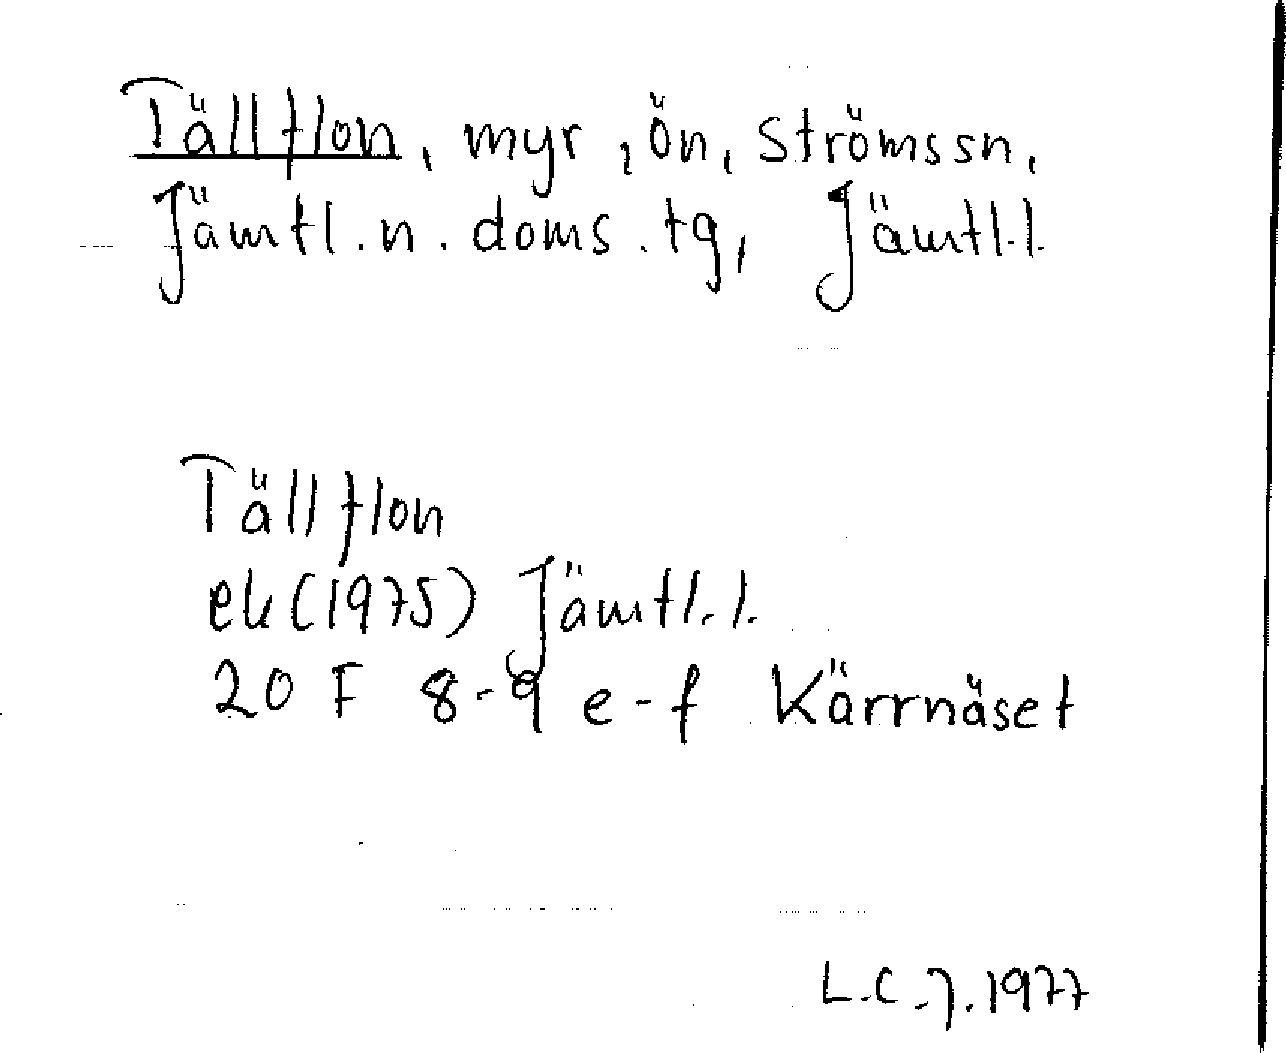 Tällflon, myr, Ön, Strömssn,
Jämtl.n.doms.tg, Jämtl.l.
Tällflon
ek(1975) Jämtl.l.
20 F 8-9 e-f Kärrnäset
L.C.J.1977